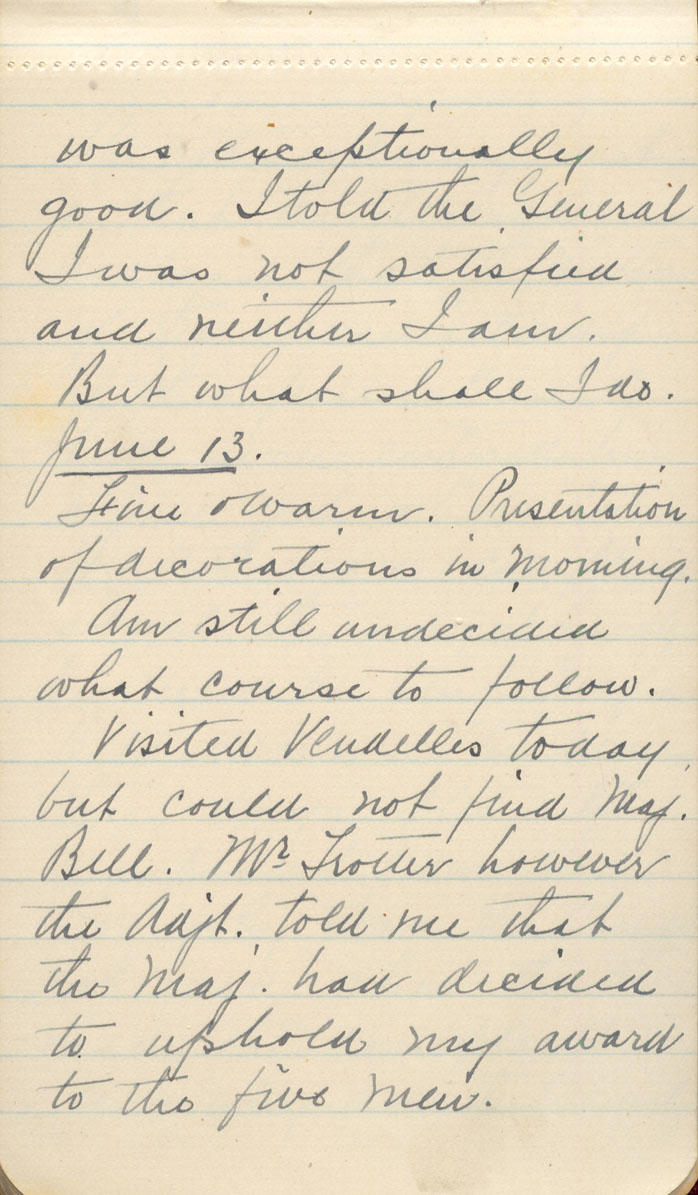 was exceptionally
good. I told the General
I was not satisfied
and neither I am.
But what shall I do.
June 13.
Fine & warm. Presentation
of decorations in morning.
Am still undecided
what course to follow.
Visited Vendelles today,
but could not find Maj.
Bell. Mr Trotter however
the Adjt. told me that
the Maj. had decided
to uphold my award
to the five men.